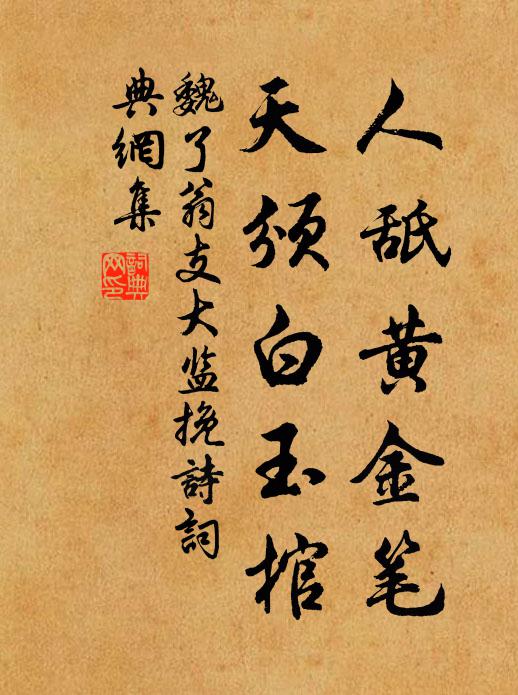 人舐黄金笔
天颁白玉棺
魏了翁支大监挽詩詞
典網集
詞典網印